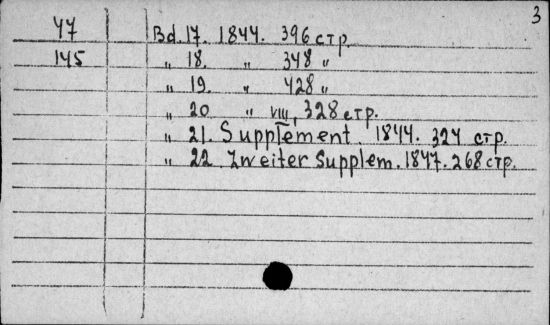 3
47 Bd. 17. 1844. 396 стр.
145 " 18. " 348 "
" 19. " 428 "
" 20 " VIII, 328 стр.
" 21. Supplement. 1844. 324 стр.
" 22 Zweiter Supplem. 1847. 268 стр.